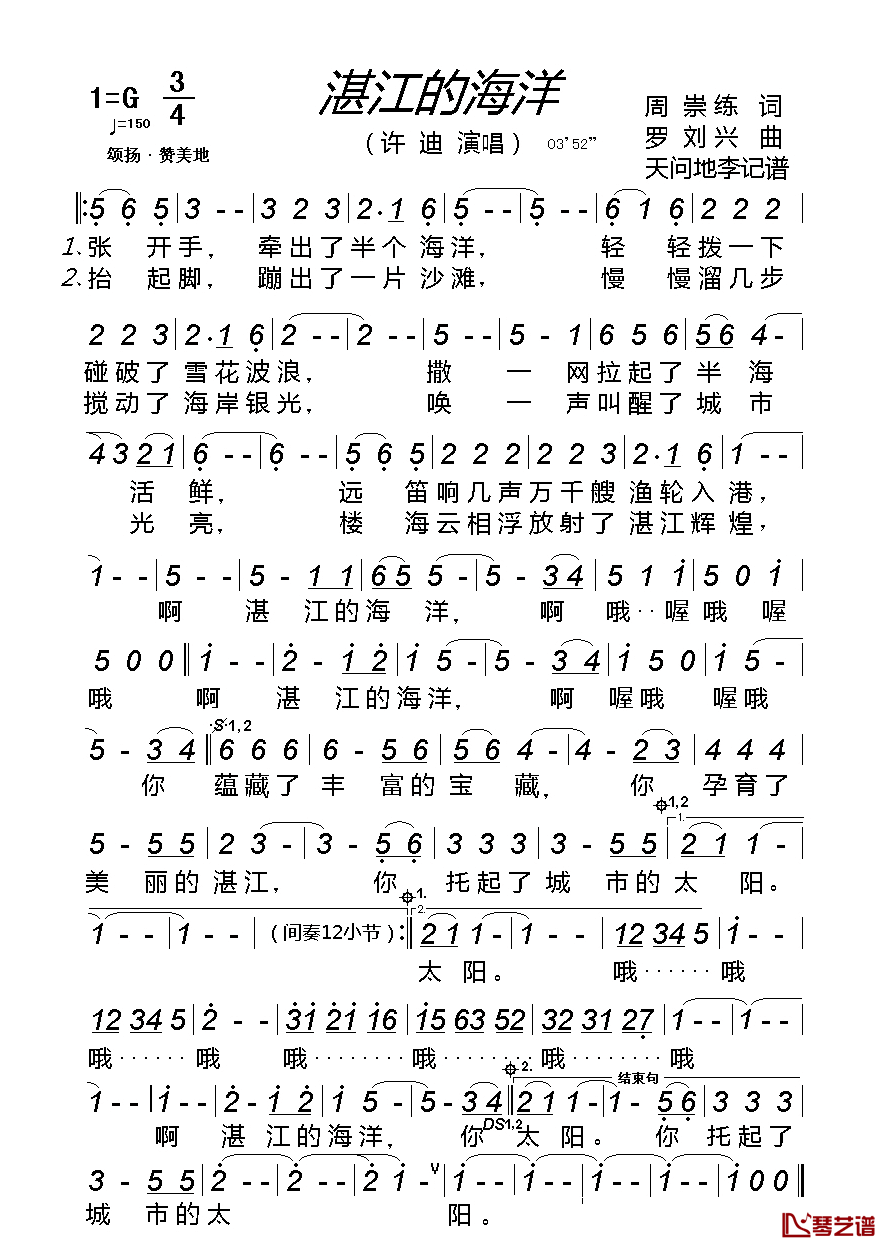 湛江的海洋
1=G 3/4
♩=150
颂扬·赞美地
（许 迪 演唱） 03'52"
周 崇 练 词
罗 刘 兴 曲
天问地李记谱
5 6 5 | 3 - - | 3 2 3 | 2· 1 6 | 5 - - | 5 - - | 6 1 6 | 2 2 2 |
1、张 开 手， 牵 出 了 半 个 海 洋， 轻 轻 拨 一 下
2、抬 起 脚， 蹦 出 了 一 片 沙 滩， 慢 慢 溜 几 步
2 2 3 | 2· 1 6 | 2 - - | 2 - - | 5 - - | 5 - 1 | 6 5 6 | 5 6 4 - |
碰 破 了 雪 花 波 浪， 撒 一 网 拉 起 了 半 海
搅 动 了 海 岸 银 光， 唤 一 声 叫 醒 了 城 市
4 3 2 1 | 6 - - | 6 - - | 5 6 5 | 2 2 2 | 2 2 3 | 2· 1 6 | 1 - - |
活 鲜， 远 笛 响 几 声 万 千 艘 渔 轮 入 港，
光 亮， 楼 海 云 相 浮 放 射 了 湛 江 辉 煌，
1 - - | 5 - - | 5 - 1 1 | 6 5 5 - | 5 - 3 4 | 5 1 1 | 5 0 1 |
啊 湛 江 的 海 洋， 啊 哦·· 喔 哦 喔
5 0 0 || 1 - - | 2 - 1 2 | 1 5 - | 5 - 3 4 | 1 5 0 | 1 5 - |
哦 啊 湛 江 的 海 洋， 啊 喔 哦 喔 哦
S 1,2
5 - 3 4 || 6 6 6 | 6 - 5 6 | 5 6 4 - | 4 - 2 3 | 4 4 4 |
你 蕴 藏 了 丰 富 的 宝 藏， 你 孕 育 了
1,2 1.
5 - 5 5 | 2 3 - | 3 - 5 6 | 3 3 3 | 3 - 5 5 | 2 1 1 - |
美 丽 的 湛 江， 你 托 起 了 城 市 的 太 阳。
1. 2.
1 - - | 1 - - | （间奏12小节）:|| 2 1 1 - | 1 - - | 12 34 5 | 1 - - |
太 阳。 哦······ 哦
12 34 5 | 2 - - | 31 21 16 | 15 63 52 | 32 31 27 | 1 - - | 1 - - |
哦······ 哦 哦········ 哦········ 哦········ 哦
2. 结束句
1 - - | 1 - - | 2 - 1 2 | 1 5 - | 5 - 3 4 || 2 1 1 - | 1 - 5 6 | 3 3 3 |
DS1,2
啊 湛 江 的 海 洋， 你 太 阳。 你 托 起 了
3 - 5 5 | 2 - - | 2 - - | 2 1 - | 1 - - | 1 - - | 1 - - | 1 0 0 ||
城 市 的 太 阳。
琴艺谱